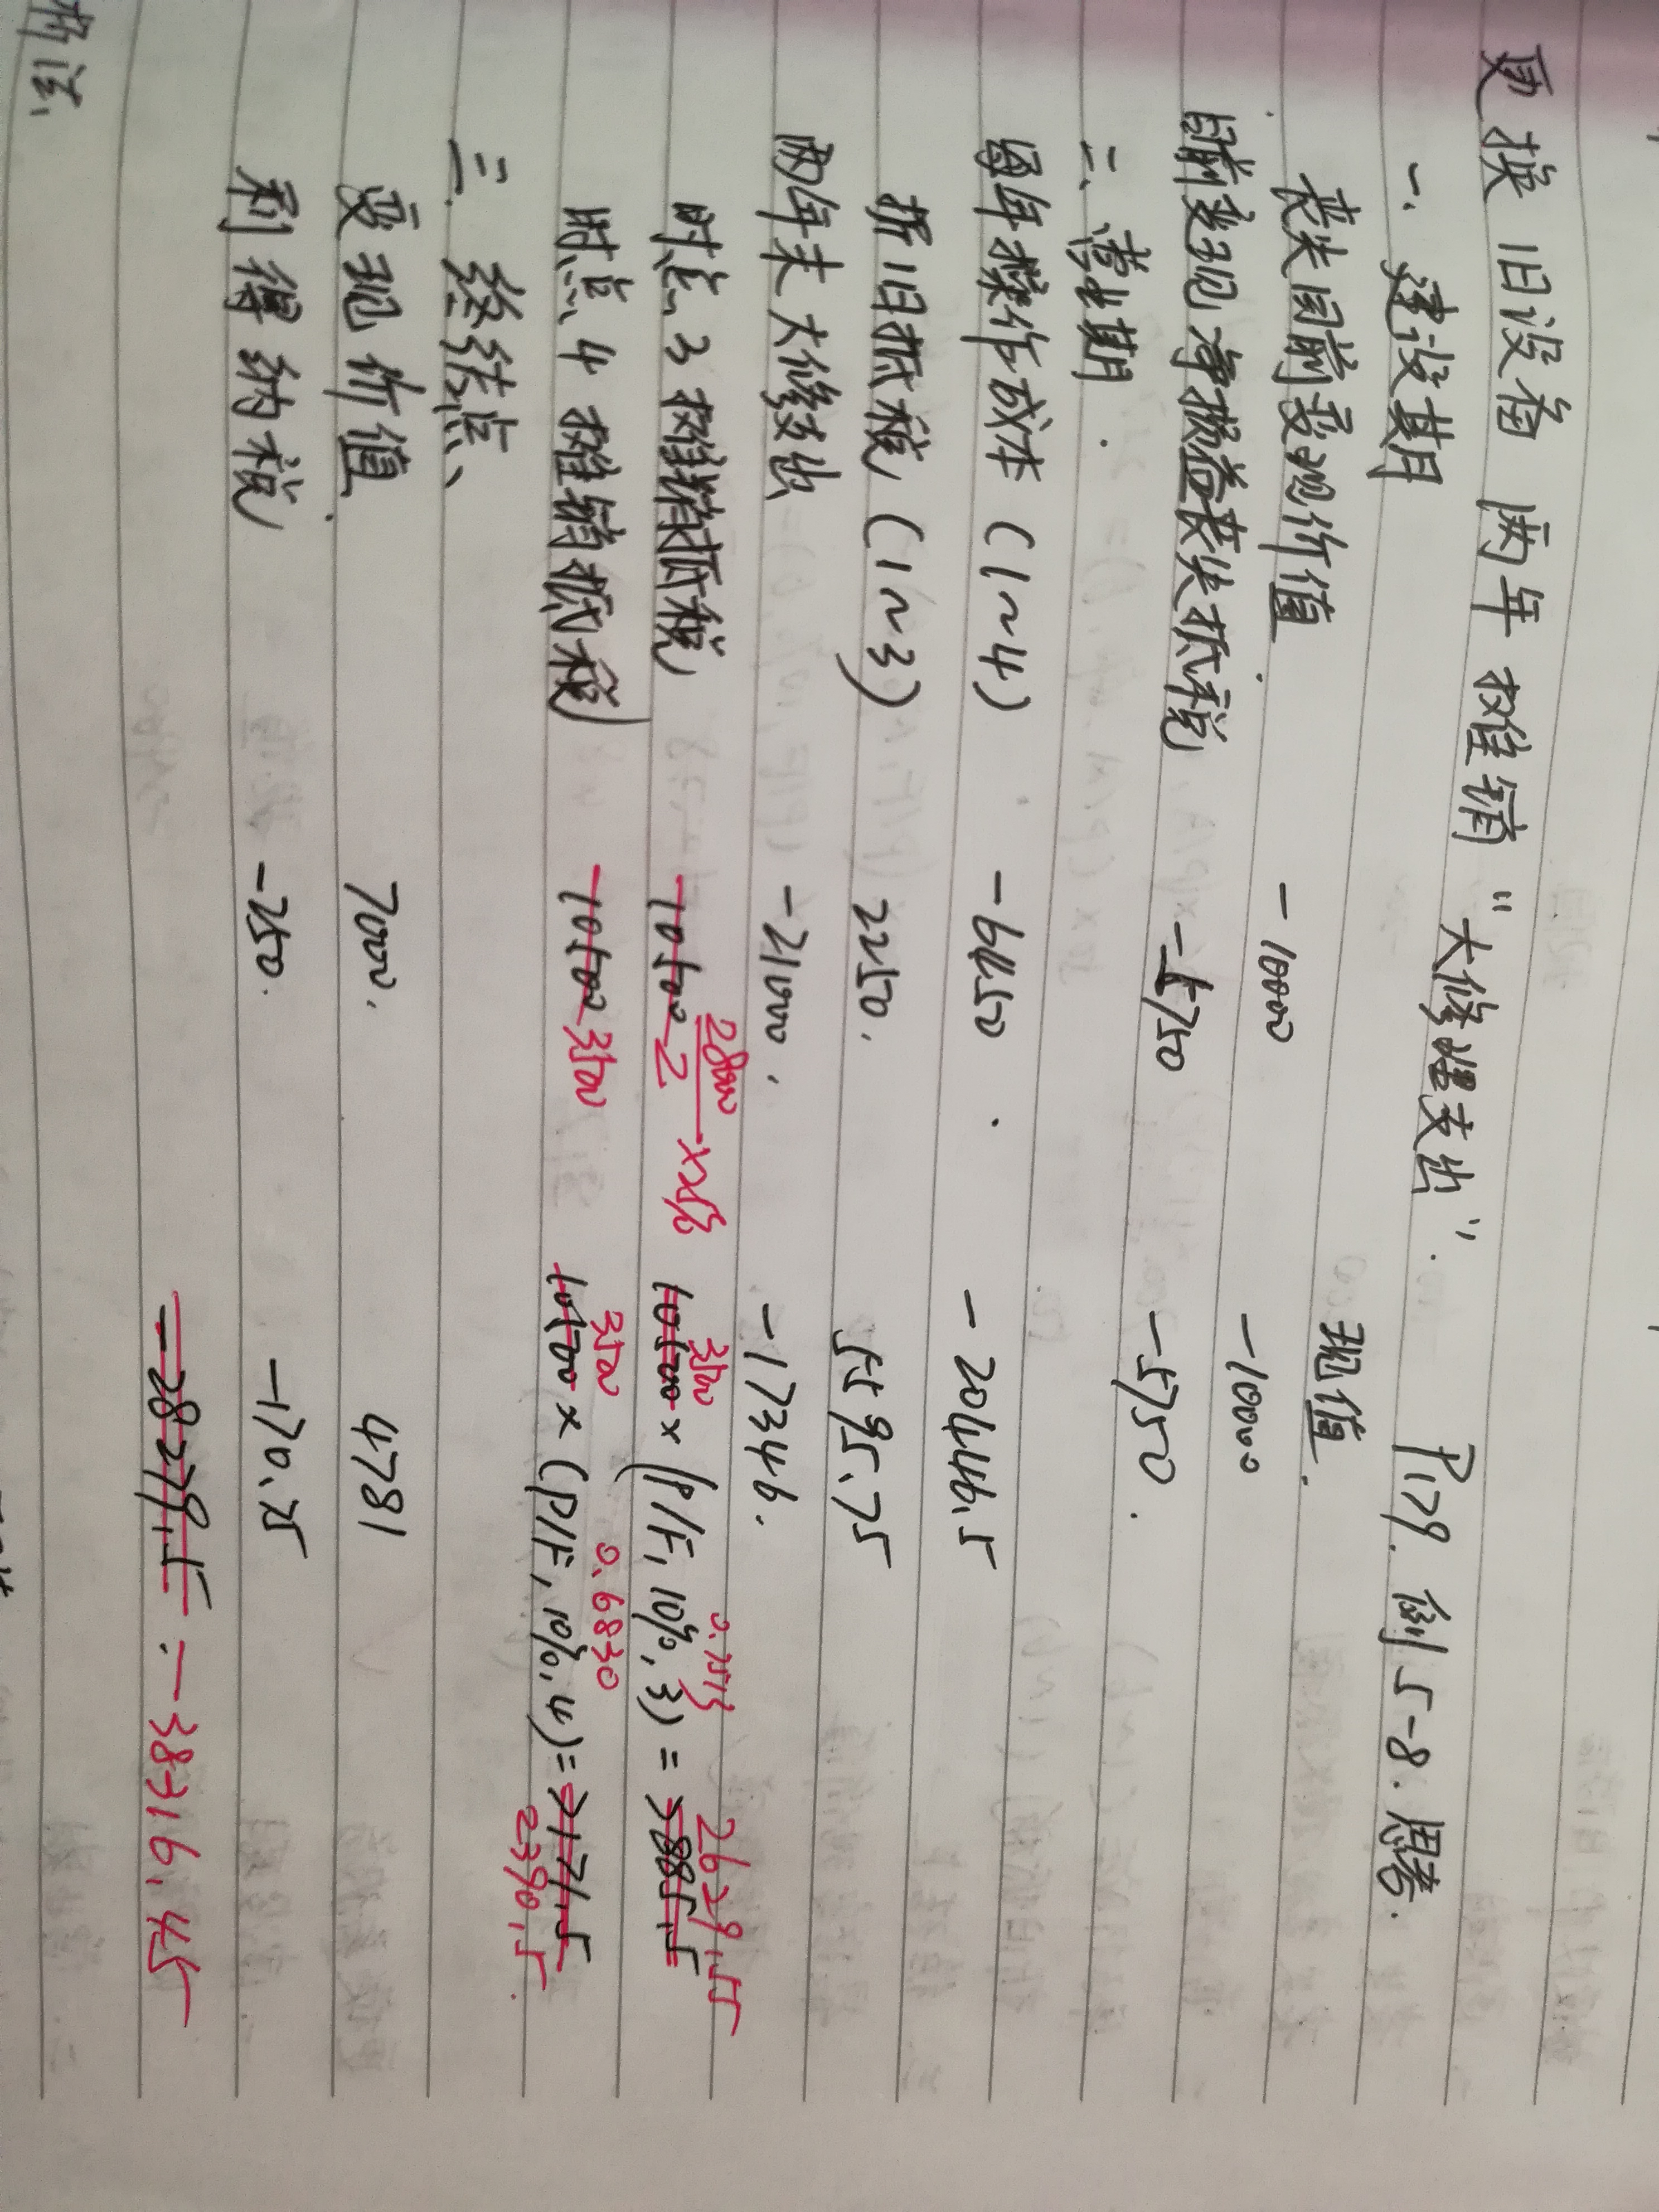 更换旧设备 两年摊销“大修理支出”. P179. 例5-8. 思考.
一. 建设期 现值.
丧失目前变现价值 -10000 -10000
目前变现净损益丧失抵税 -5750 -5750.
二. 营业期.
每年操作成本 (1~4) -6450 -20446.5
折旧抵税 (1~3) 2250. 5595.75
两年末大修支出 -21000. -17346.
时点3摊销抵税 10500 28000/2×25% 10500 3500 × (P/F, 10%, 3) 0.7513 = 7885.5 2629.55
时点4摊销抵税 10500 3500 10500 3500 × (P/F, 10%, 4) 0.6830 = 7171.5 2390.5.
三. 终结点、
变现价值 7000. 4781
利得纳税 -250. -170.75
-28279.5 -38316.45